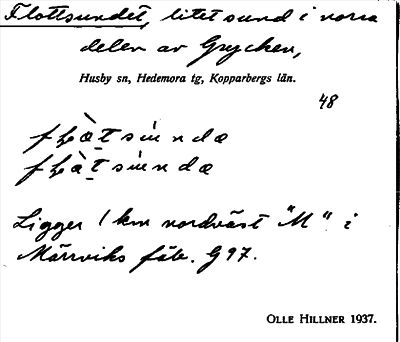 Flottsundet, litet sund i norra
delen av Grycken,
Husby sn, Hedemora tg, Kopparbergs län.
48
Ligger 1 km nordväst "M" i
Märrviks fäb. G97.
OLLE HILLNER 1937.